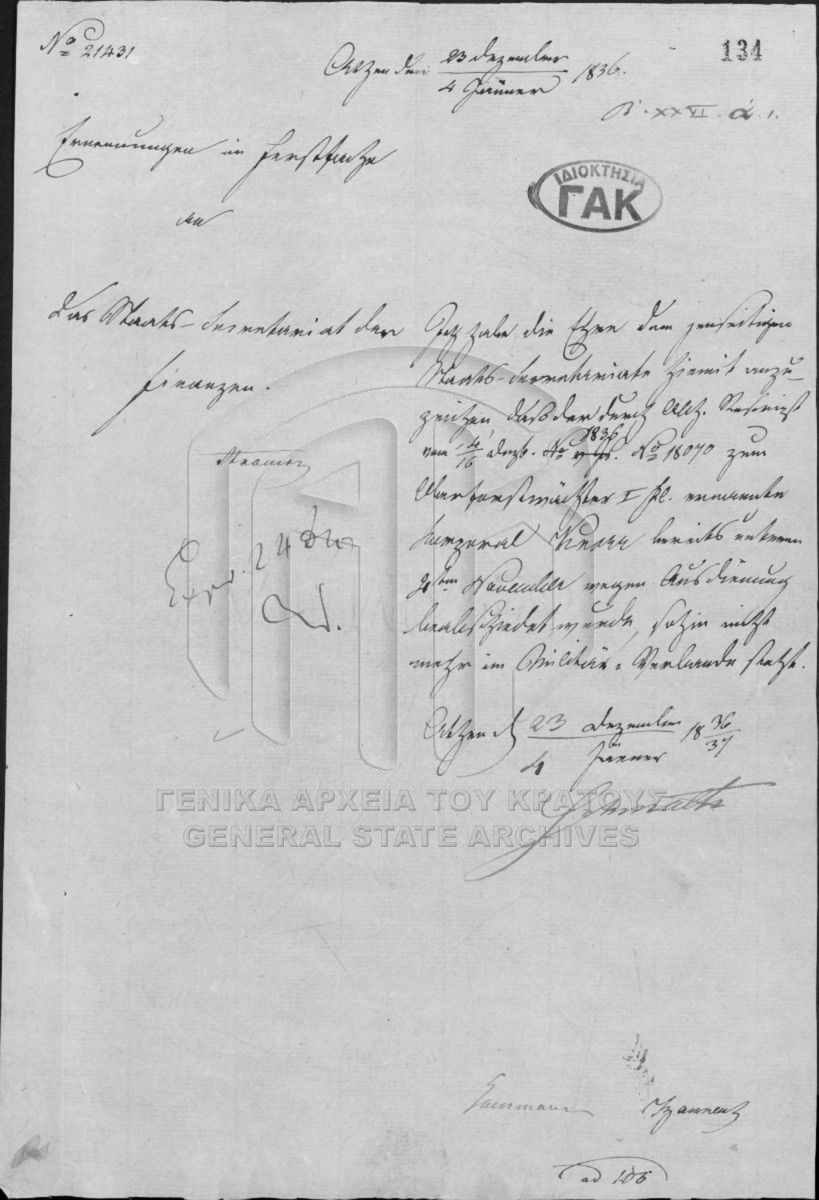 No 21431
134
Athen den 23 Dezember / 4 Jänner 1836.
XXVI. α. 1.
Ernennungen im Forstfache
an
das Staats-Secretariat der
Finanzen.
ΙΔΙΟΚΤΗΣΙΑ
ΓΑΚ
Ich habe die Ehre dem jenseitigen
Staats-Secretariate hiemit anzu-
zeigen, daß der durch Allh. Rescript
vom 4/16 Dezb. 1836 No 18070 zum
Oberforstwächter I Kl. ernannte
Korporal bereits unterm
November wegen Ausdienung
verabschiedet wurde, sohin nicht
mehr im Militär-Verbande steht.
Athen d 23 Dezember / 4 Jänner 18 36/37
Schmaltz
Exp. 24
ΓΕΝΙΚΑ ΑΡΧΕΙΑ ΤΟΥ ΚΡΑΤΟΥΣ
GENERAL STATE ARCHIVES
ad 106